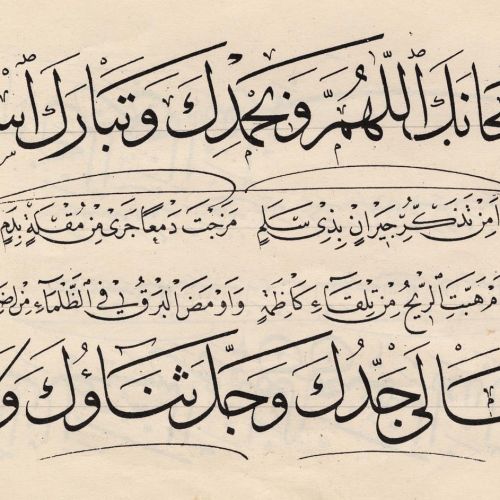 حَانَكَ اللّٰهُمَّ وَبِحَمْدِكَ وَتَبَارَكَ اسْ
اَمِنْ تَذَكُّرِ جِيرَانٍ بِذِى سَلَمٍ مَزَجْتَ دَمْعًا جَرٰى مِنْ مُقْلَةٍ بِدَمِ
مْ هَبَّتِ الرِّيحُ مِنْ تِلْقَاءِ كَاظِمَةٍ وَاَوْمَضَ الْبَرْقُ فِى الظَّلْمَاءِ مِنْ اِضَ
عَالٰى جَدُّكَ وَجَلَّ ثَنَاؤُكَ وَلَا